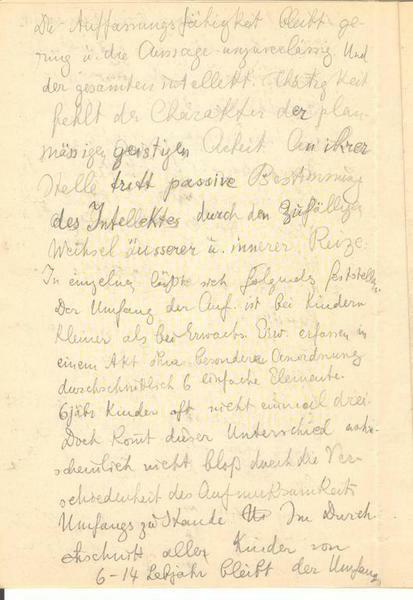 Die Auffassungsfähigkeit bleibt ge-
ring u. die Aussage unzuverlässig Und
der gesamten intellekt. Thätigkeit
fehlt der Charakter der plan-
mässigen geistigen Arbeit An ihrer
Stelle tritt passive Bestimmung
des Intellektes durch den zufälligen
Wechsel äusserer u. innerer Reize.
In einzelnen läßt sich folgendes feststellen.
Der Umfang der Auf. ist bei Kindern
kleiner als bei Erwachs. Erw. erfassen in
einem Akt ohne besondere Anordnung
durchschnittlich 6 einfache Elemente.
6jähr. Kinder oft nicht einmal drei
Doch komt dieser Unterschied wahr-
scheinlich nicht bloß durch die Ver-
schiedenheit des Aufmerksamkeits
Umfangs zu Stande Im Durch-
schnitt aller Kinder von
6-14 Lebjahr bleibt der Umfang